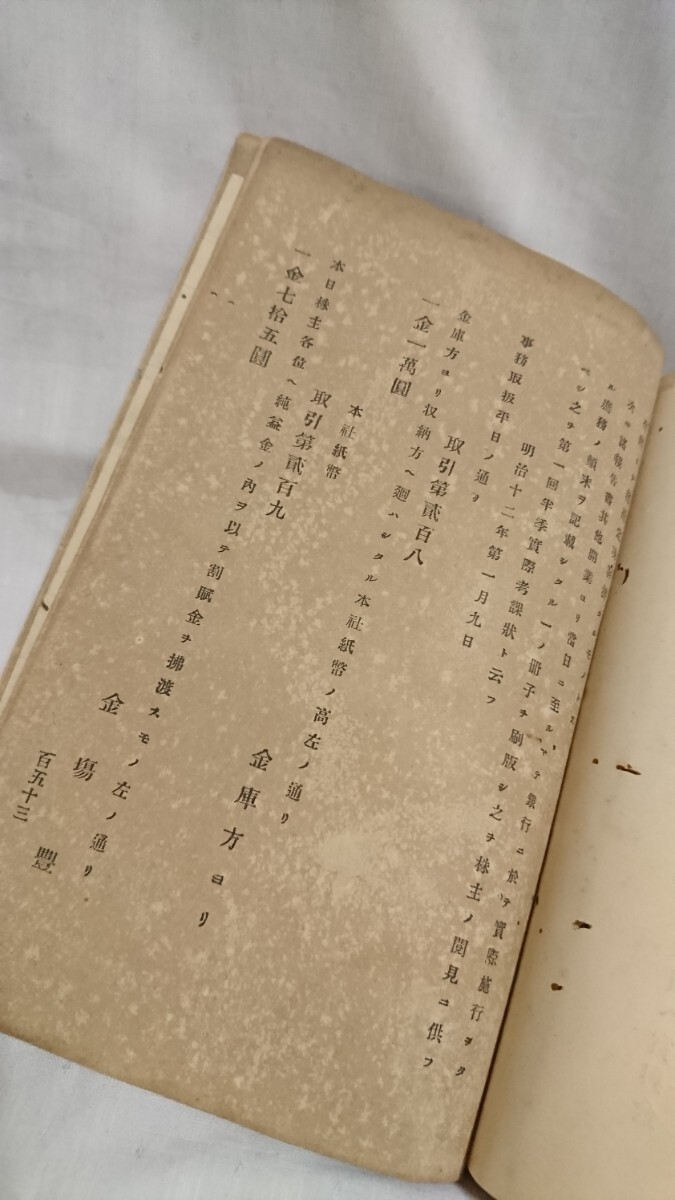 ル庶務ノ顛末ヲ記載シタル一ノ冊子ヲ刷版シ之ヲ株主ノ閲見ニ供フ
ベシ之ヲ第一回半季實際考課狀ト云フ
明治十二年第一月九日
事務取扱平日ノ通リ
取引第貳百八
金庫方ヨリ収納方ヘ廻ハシタル本社紙幣ノ高左ノ通リ
一金一萬圓
金庫方ヨリ
本社紙幣
取引第貳百九
本日株主各位ヘ純益金ノ內ヲ以テ割賦金ヲ拂渡スモノ左ノ通リ
一金七拾五圓
金場豐
百五十三